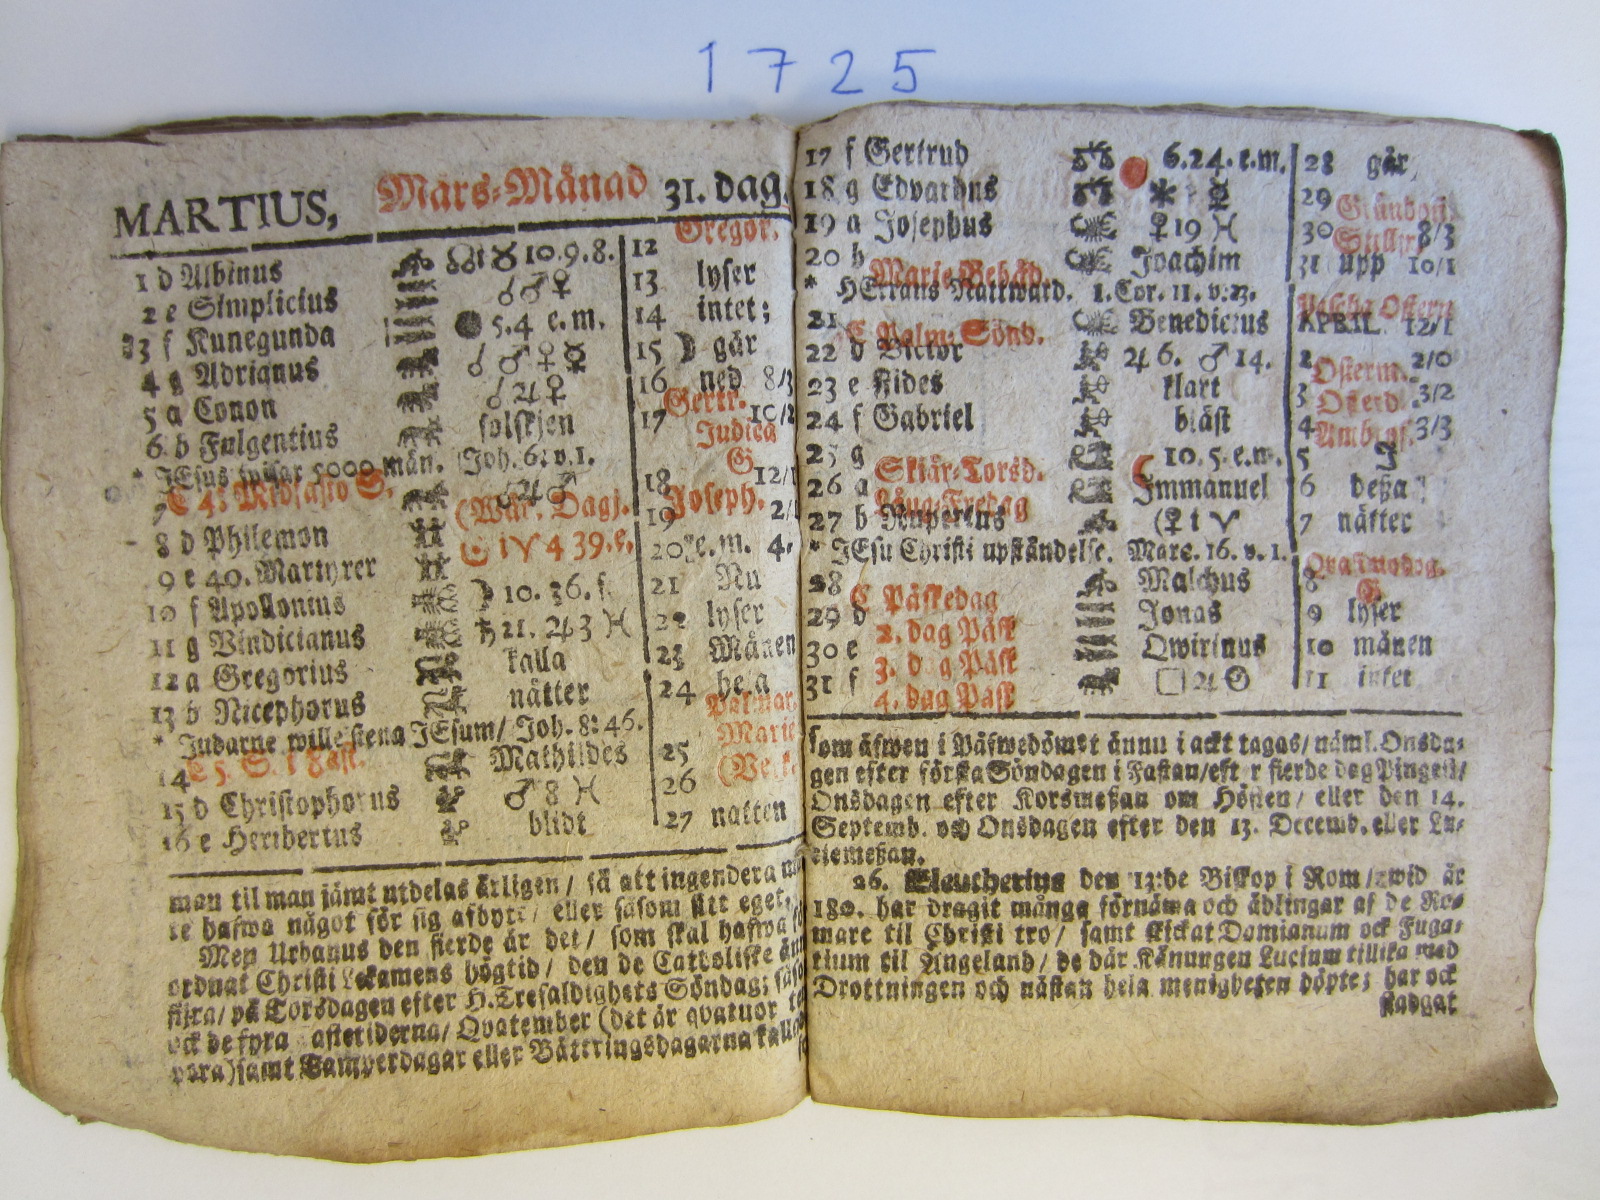 1725
MARTIUS, Mars-Månad 31. dag.
Gregor.
1 d Albinus ☊ 1 ♉ 10.9.8. 12
2 e Simplicius ☌ ♂ ♀ 13 lyser
3 f Kunegunda 5.4 e.m. 14 intet;
4 g Adrianus ☌ ♂ ♀ ☿ 15 ☽ går
5 a Conon ☌ ♃ ♀ 16 ned 8/3
Gertr.
6 b Fulgentius solskjen 17 10/2
Judica
* JEsus spisar 5000 män. Joh. 6: v. 1. G
7 C 4. Midfasto S. ☌ ♃ ♂ 18 12/1
(Wår. Dagj. Joseph.
8 d Philemon 19 2/1
9 e 40. Martyrer ☉ 1 ♈ 4 39. e. 20 e.m. 4.
10 f Apollonius ☽ 10. 36. f. 21 Nu
11 g Vindicianus ♄ 21. ♃ 3 ♓ 22 lyser
12 a Gregorius kalla 23 Månen
13 b Nicephorus nätter 24 hela
Palmar.
* Judarne wille stena JEsum/ Joh. 8: 46.
Marie
14 C 5. S. i Fast. Mathildes 25
15 d Christophorus ♂ 8 ♓ 26
16 e Heribertus blidt 27 natten
man til man jämt utdelas årligen / så att ingendera
te hafwa något för sig afbytt / eller såsom sitt eget.
Men Urbanus den fierde är det / som skal hafwa
ordnat Christi Lekamens högtid / den de Catholiske
fijra / på Torsdagen efter H. Trefaldighets Söndag;
ock de fyra fastetiderna / Qvatember (det är qvatuor
pora) samt Tamperdagar eller Bättringsdagarna
17 f Gertrud 6.24. e.m. 28 går
18 g Edvardus 29
Gründon.
19 a Josephus ♀ 19 ♓ 30 8/3
Stillfr.
20 b Joachim 31 upp 10/1
Marie Bebåd.
* HErrans Nattward. 1. Cor. 11. v: 23.
Pascha Ostern
21 C Palm-Sönd. Benedictus APRIL. 12/1
22 d Victor ♃ 6. ♂ 14. 2 2/0
Osterm.
23 e Fides klart 3 3/2
Osterd.
24 f Gabriel bläst 4 3/3
Ambros.
25 g 10. 5. e.m. 5 J
Skiär-Torsd.
26 a Immanuel 6 deßa
Lång-Fredag
27 b Rupertus (♀ 1 ♈ 7 nätter
* JEsu Christi upståndelse. Marc. 16. v. 1.
Quasimodog.
28 C Påskedag Malchus 8 G
29 d 2. dag Påsk Jonas 9 lyser
30 e 3. dag Påsk Qwirinus 10 månen
31 f 4. dag Påsk □ ♃ ☉ 11 intet
som äfwen i Påfwedömet ännu i ackt tagas / nämł. Onsda-
gen efter första Söndagen i Fastan / efter fierde dag Pingest /
Onsdagen efter Korsmeßan om Hösten / eller den 14.
Septemb. och Onsdagen efter den 13. Decemb. eller Lu-
ciemeßan.
26. Eleutherius den 13:de Biskop i Rom / wid år
180. har dragit många förnäma och ädlingar af de Ro-
mare til Christi tro / samt skickat Damianum ock Fuga-
tium til Ängeland / de där Känungen Lucium tillika med
Drottningen och nästan hela menigheten döpte; har ock
stadgat